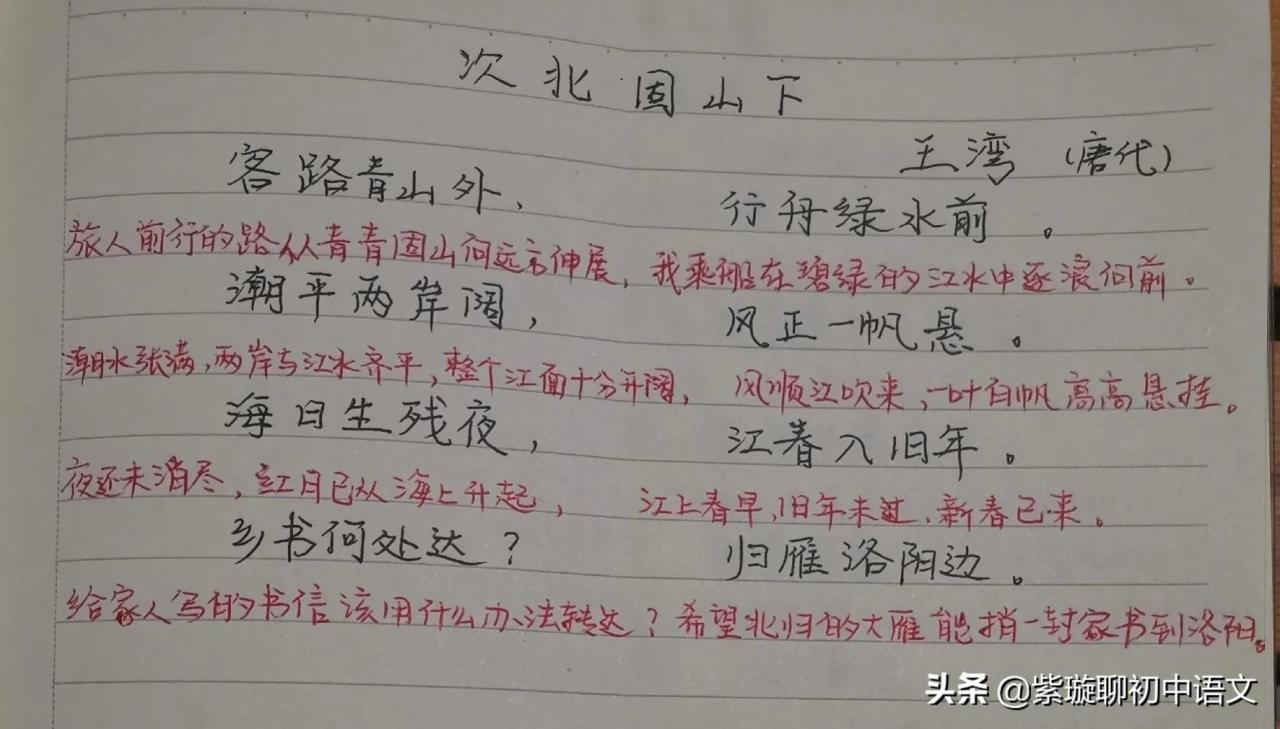 次北固山下
王湾 (唐代)
客路青山外, 行舟绿水前。
旅人前行的路从青青固山向远方伸展, 我乘船在碧绿的江水中逐浪向前。
潮平两岸阔, 风正一帆悬。
潮水张满,两岸与江水齐平,整个江面十分开阔, 风顺江吹来,一叶白帆高高悬挂。
海日生残夜, 江春入旧年。
夜还未消尽,红日已从海上升起, 江上春早,旧年未过,新春已来。
乡书何处达? 归雁洛阳边。
给家人写的书信该用什么办法转达?希望北归的大雁能捎一封家书到洛阳。
头条 @紫璇聊初中语文